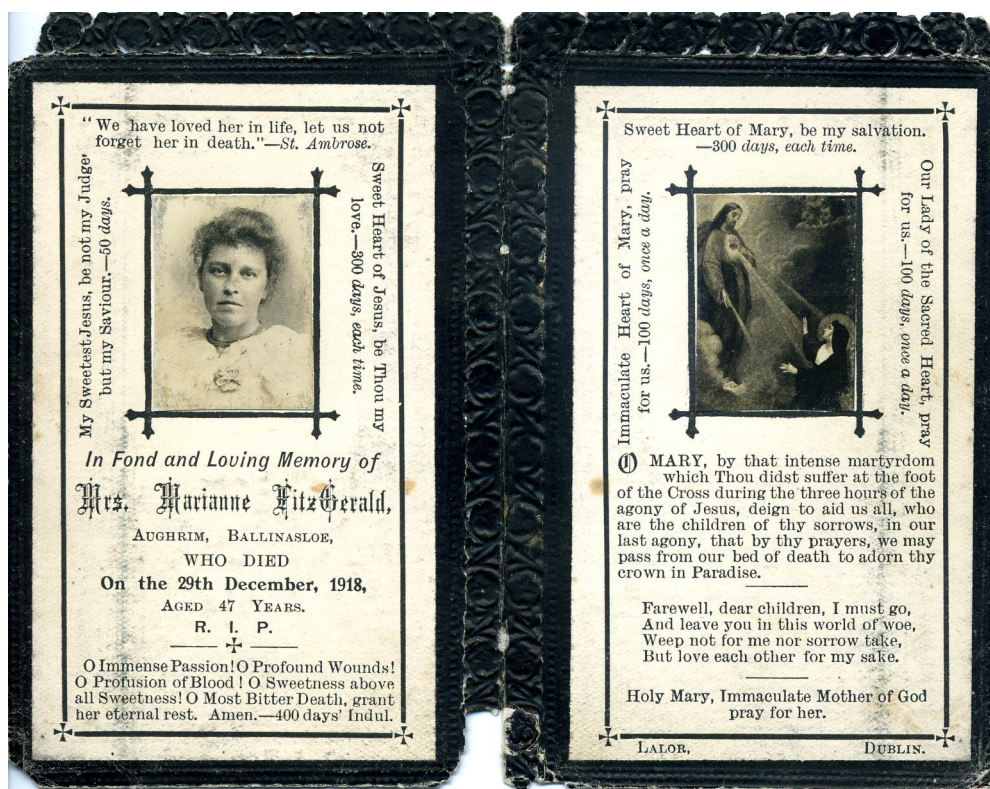 “ We have loved her in life, let us not
forget her in death.”—St. Ambrose.
My Sweetest Jesus, be not my Judge·
but my Saviour.—50 days.
Sweet Heart of Jesus, be Thou my
love.—300 days, each time.
In Fond and Loving Memory of
Mrs. Marianne FitzGerald,
AUGHRIM, BALLINASLOE,
WHO DIED
On the 29th December, 1918,
AGED 47 YEARS.
R. I. P.
O Immense Passion! O Profound Wounds!
O Profusion of Blood ! O Sweetness above
all Sweetness! O Most Bitter Death, grant
her eternal rest. Amen.—400 days' Indul.
Sweet Heart of Mary, be my salvation.
—300 days, each time.
Immaculate Heart of Mary, pray
for us.—100 days, once a day.
Our Lady of the Sacred Heart, pray
for us.—100 days, once a day.
O MARY, by that intense martyrdom
which Thou didst suffer at the foot
of the Cross during the three hours of the
agony of Jesus, deign to aid us all, who
are the children of thy sorrows, in our
last agony, that by thy prayers, we may
pass from our bed of death to adorn thy
crown in Paradise.
Farewell, dear children, I must go,
And leave you in this world of woe,
Weep not for me nor sorrow take,
But love each other for my sake.
Holy Mary, Immaculate Mother of God
pray for her.
LALOR, DUBLIN.